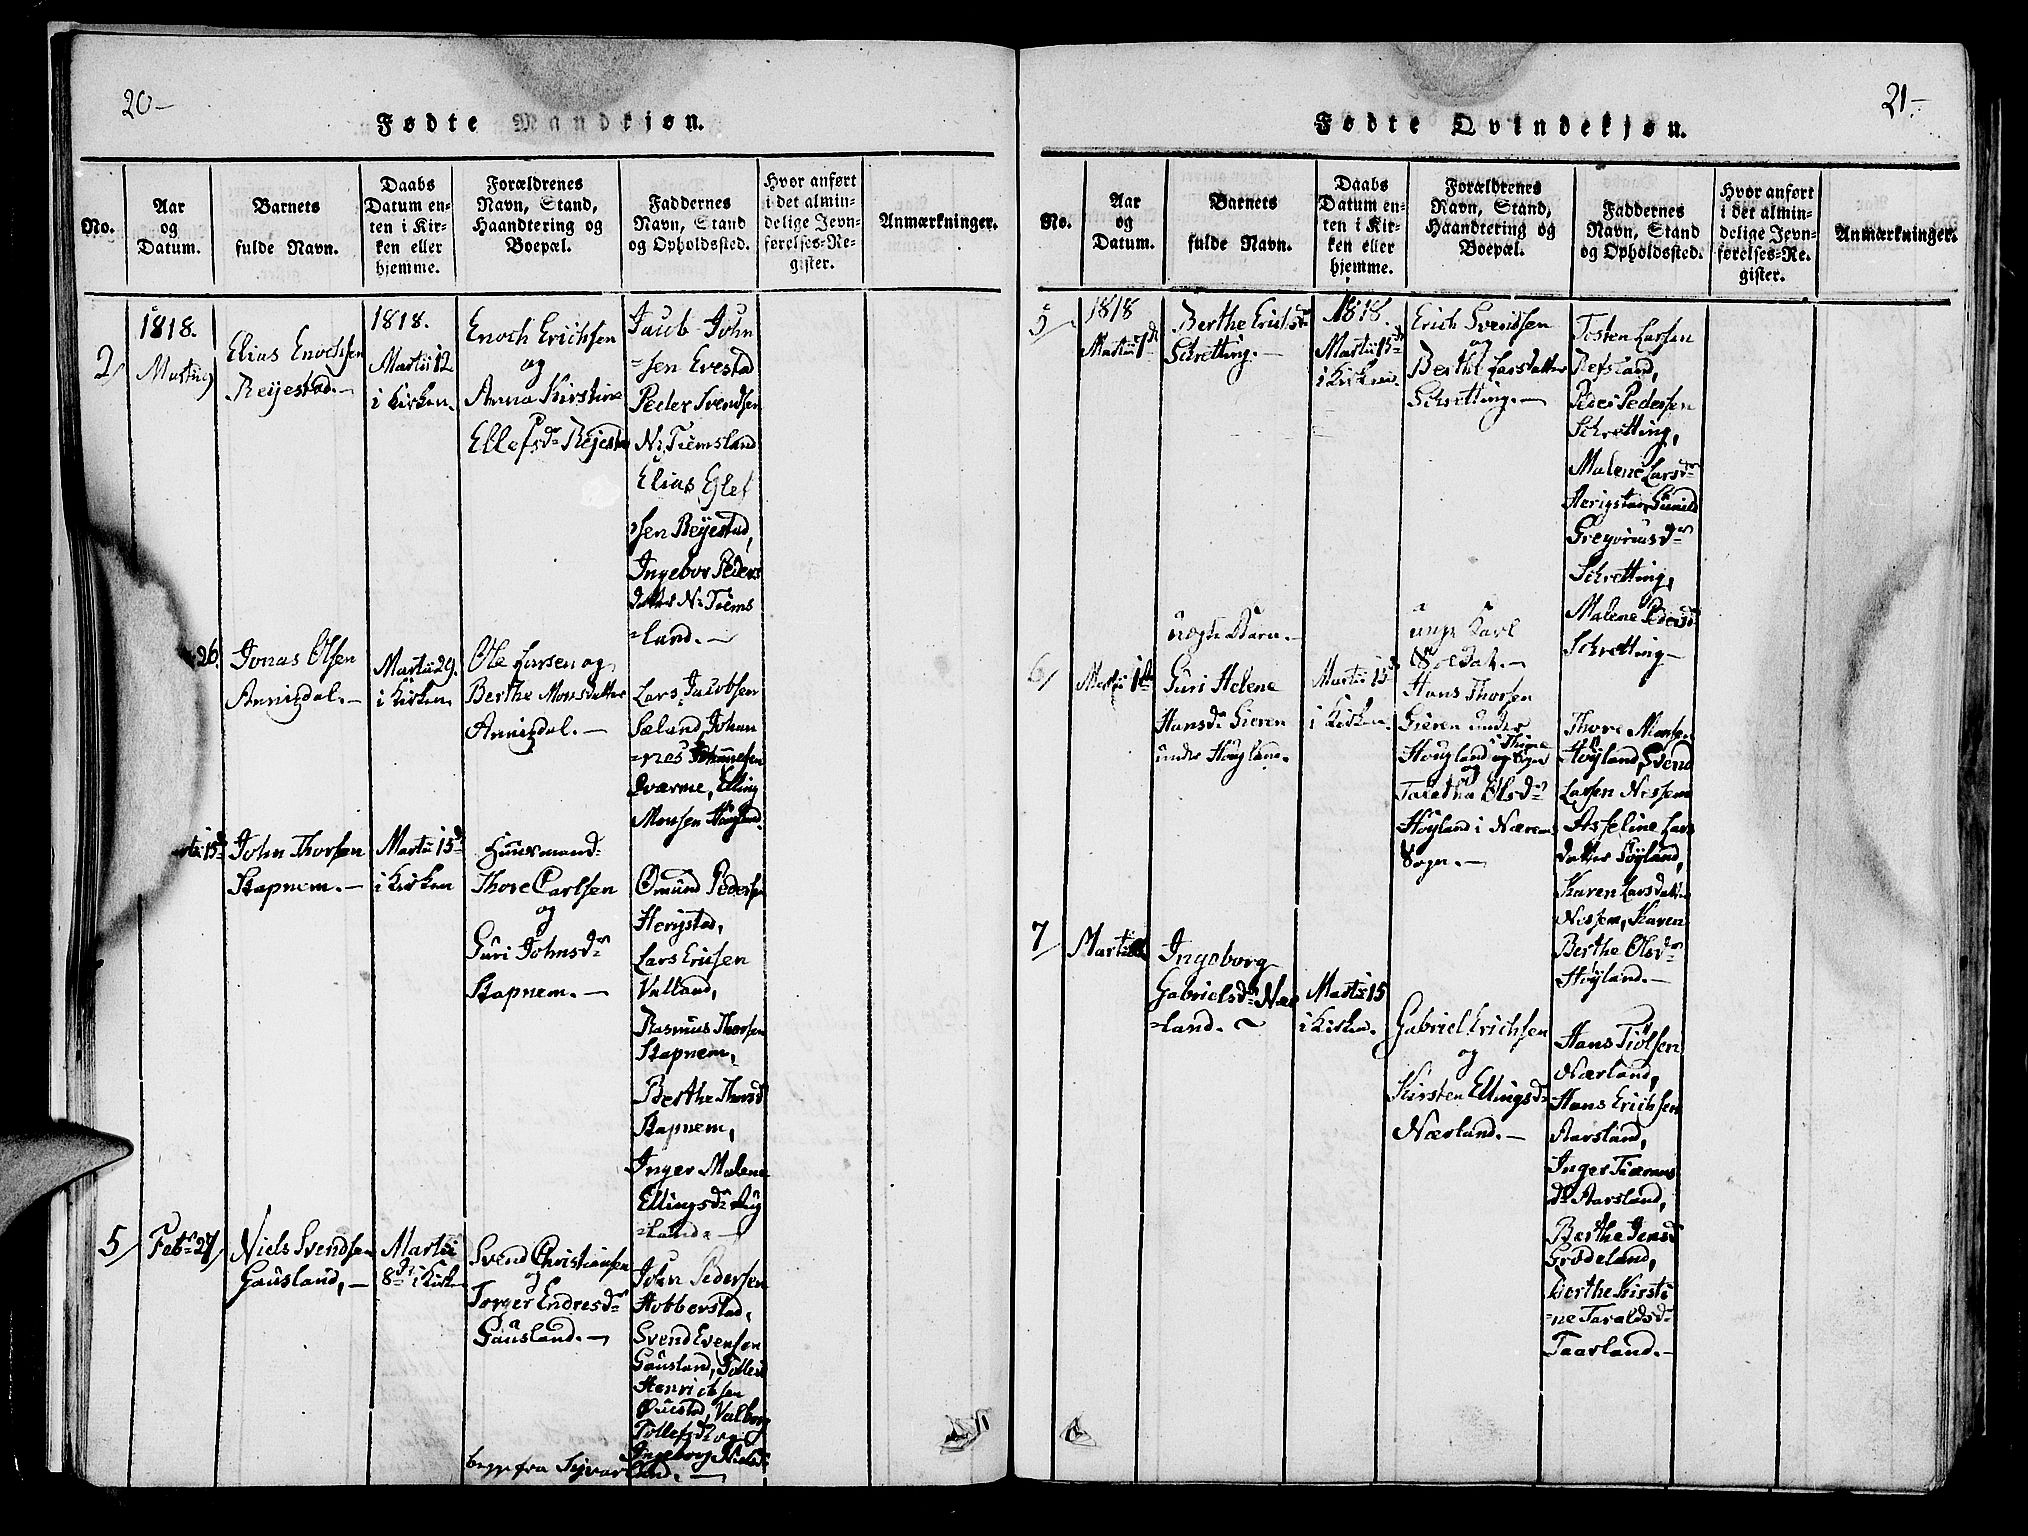 20-
Fødte Mandkjøn.
No.
Aar
og
Datum.
Barnets
fulde Navn.
Daabs
Datum en-
ten i Kir-
ken eller
hjemme.
Forældrenes
Navn, Stand,
Haandtering og
Boepæl.
Faddernes
Navn, Stand
og Opholdssted.
Hvor anført
i det almin-
delige Jevn-
førelses-Re-
gister.
Anmærkninger.
2/
1818.
Elias Enochsen
Reijestad.-
1818.
Martii 12
i Kirken.
Enoch Erichsen
og
Anna Kirstine
Ellefsdr
Jacob John
=sen Evestad
Peder Svendsen
N: Tiemsland
Elias
sen Reijestad,
Ingebor Peders
datter N: Tiems
=land.-
26.
Jonas Olsen
Annigdal.-
Martii 29.
i Kirken
Ole Larsen og
Berthe Monsdatter
Annigdal.-
Lars Jacobsen
Sæland, Johan
=nes Johannesen
Qværme, Elling
Monsen
15d
John Thorsen
Stapnem.-
Martii 15d
i Kirken
Huusmand
Thore Carlsen
og
Guri Johnsdr
Stapnem.-
Ømund Pedersen
Herigstad,
Lars Ericsen
Valland,
Rasmus Thorsen
Stapnem,
Berthe Thorsd
Stapnem,
Inger Malene
Ellingsdr
=land.-
5/
Febr 27/
Niels Svendsen
Gausland,-
Martii
8de i Kirken
Svend Christiansen
og
Torger Endresdr
Gausland.-
John Pedersen
Hobberstad,
Svend Evensen
Gausland, Tollev
Henrichsen
Øvestad, Valborg
Tollefsdr og
Ingeborg Nielsdr
begge fra
land.-
21-
Fødte Qvindekjøn.
No.
Aar
og
Datum.
Barnets
fulde Navn.
Daabs
Datum en-
ten i Kir-
ken eller
hjemme.
Forældrenes
Navn, Stand,
Haandtering og
Boepæl.
Faddernes
Navn, Stand
og Opholdssted.
Hvor anført
i det almin-
delige Jevn-
førelses-Re-
gister.
Anmærkninger.
5/
1818
Martii 1d
Berthe Ericsdr
Schretting.-
1818.
Martii 15d
i Kirken.
Erich Svendsen
og
Berthe Larsdatter
Schretting.-
Tosten Larsen
Refsland,
Peder Pedersen
Schretting,
Malene Larsdr
Gunild
Gregoriusdr
Schretting,
Malene Pedersd
Schretting-
6/
Martii
uægte Barn.-
Guri Helene
Hansdr Sieren
under Høyland.
Martii 15d
i Kirken.
ungr Karl
Soldat.-
Hans Thorsen
Sieren under
Høyland i Thime
Sogn
og
Taletha Olsdr
Høyland i Nærem
Sogn.-
Thore Monsen
Høyland, Svend
Larsen Nessem
Asseline Lars
datter Høyland,
Karen Larsdatter
Nessem, Karen
Berthe Olsdr
Høyland.-
7/
Martii
Ingeborg
Gabrielsdr Nær
=land.
Martii 15
i Kirken.
Gabriel Erichsen
og
Kirsten Ellingsdr
Nærland.-
Hans Tiølsen
Nærland,
Hans Erichsen
Aarsland,
Inger
dr Aarsland,
Berthe Jensd
Grødeland,
Berthe Kirsti
=ne Taraldsdr
Taarland.-